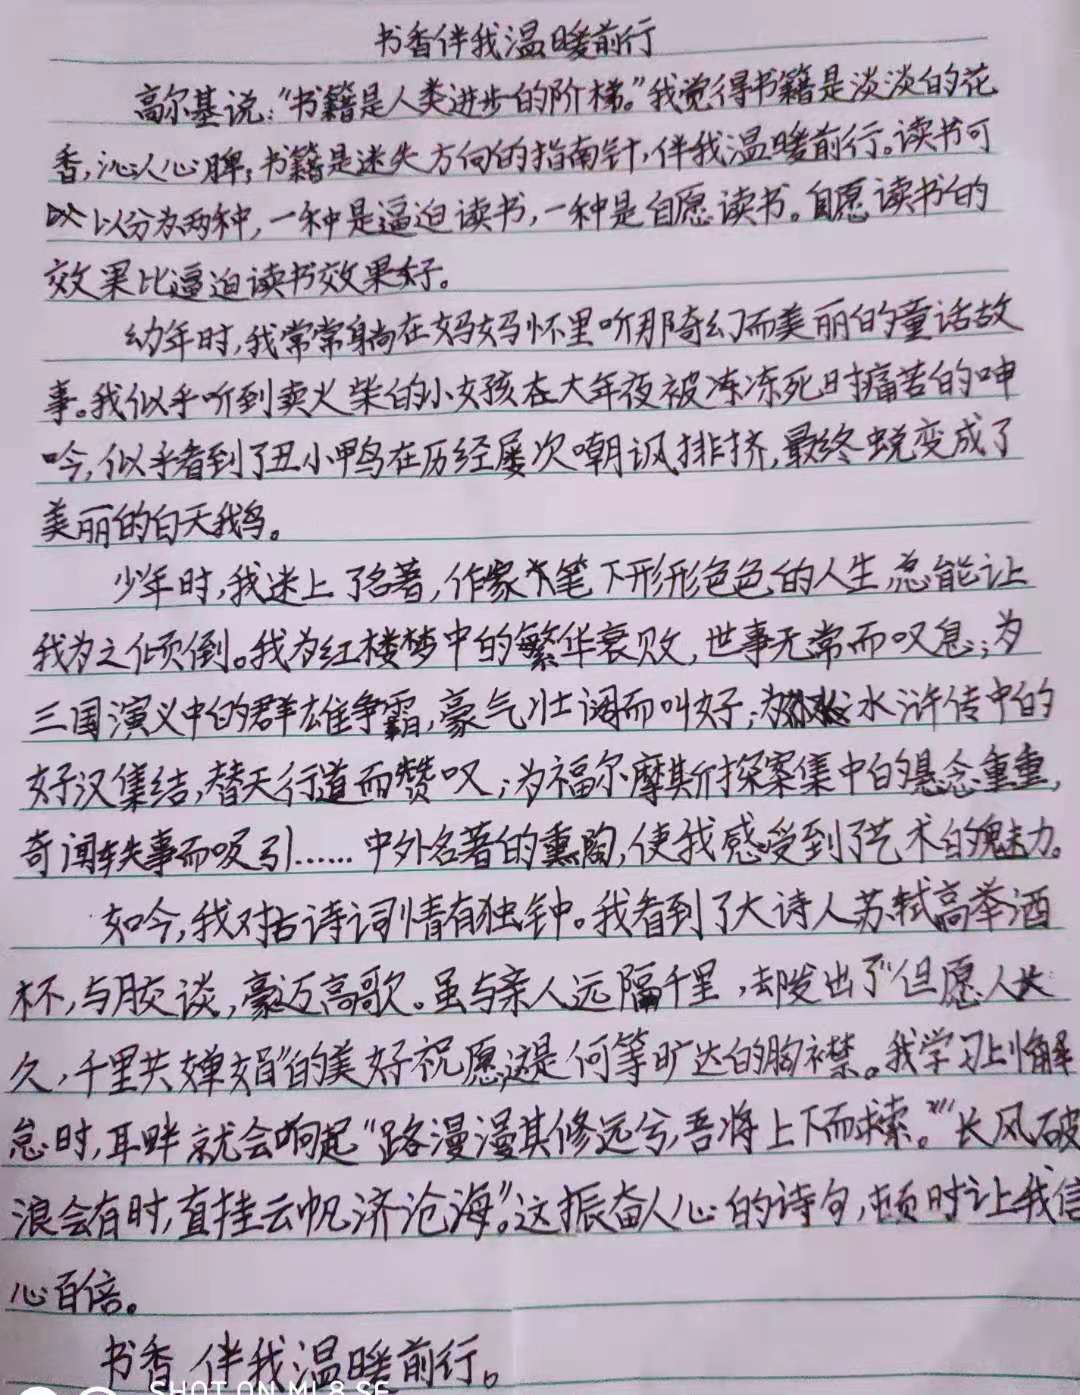 书香伴我温暖前行
高尔基说:“书籍是人类进步的阶梯。”我觉得书籍是淡淡的花
香,沁人心脾;书籍是迷失方向的指南针,伴我温暖前行。读书可
以分为两种,一种是逼迫读书,一种是自愿读书。自愿读书的
效果比逼迫读书效果好。
幼年时,我常常躺在妈妈怀里听那奇幻而美丽的童话故
事。我似乎听到卖火柴的小女孩在大年夜被冻冻死时痛苦的呻
吟,似乎看到了丑小鸭在历经屡次嘲讽排挤,最终蜕变成了
美丽的白天鹅。
少年时,我迷上了名著,作家笔下形形色色的人生,总能让
我为之倾倒。我为红楼梦中的繁华衰败,世事无常而叹息;为
三国演义中的群雄争霸,豪气壮阔而叫好;为水浒传中的
好汉集结,替天行道而赞叹;为福尔摩斯探案集中的悬念重重,
奇闻轶事而吸引……中外名著的熏陶,使我感受到了艺术的魅力。
如今,我对古诗词情有独钟。我看到了大诗人苏轼高举酒
杯,与月交谈,豪迈高歌。虽与亲人远隔千里,却发出了“但愿人长
久,千里共婵娟”的美好祝愿,这是何等旷达的胸襟。我学习上懈
怠时,耳畔就会响起“路漫漫其修远兮,吾将上下而求索。”“长风破
浪会有时,直挂云帆济沧海”。这振奋人心的诗句,顿时让我信
心百倍。
书香伴我温暖前行。
SHOT ON MI 8 SE